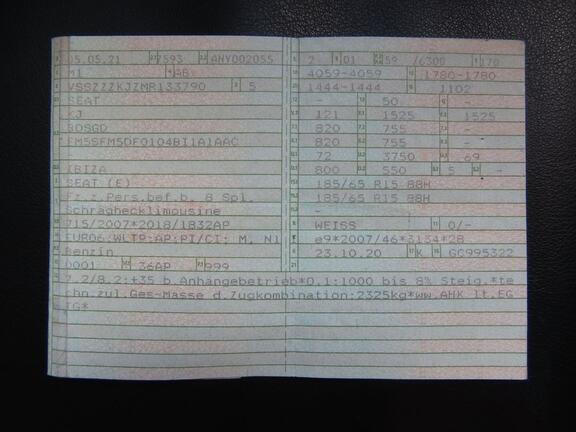 05.05.21 7593 ANY002055
M1 AB
VSSZZZKJZMR133790 5
SEAT
KJ
SOSGD
FM5SFM5DF0104BI1A1AAC
-
IBIZA
SEAT (E)
Fz.z.Pers.bef.b. 8 Spl.
Schräghecklimousine
715/2007*2018/1832AP
EURO6;WLTP;AP;PI/CI; M, N1
Benzin
0001 36AP 999
2 01 59 /6300 170
4059-4059 1780-1780
1444-1444 1102
- 50 -
121 1525 1525
820 755 -
820 755 -
72 3750 69
800 550 5 -
185/65 R15 88H
185/65 R15 88H
-
WEISS 0/-
e9*2007/46*3134*28
23.10.20 K GC995322
7.2/8.2:+35 b.Anhängebetrieb*0.1:1000 bis 8% Steig.*te
chn.zul.Ges-Masse d.Zugkombination:2325kg*ww.AHK lt.EG
TG*